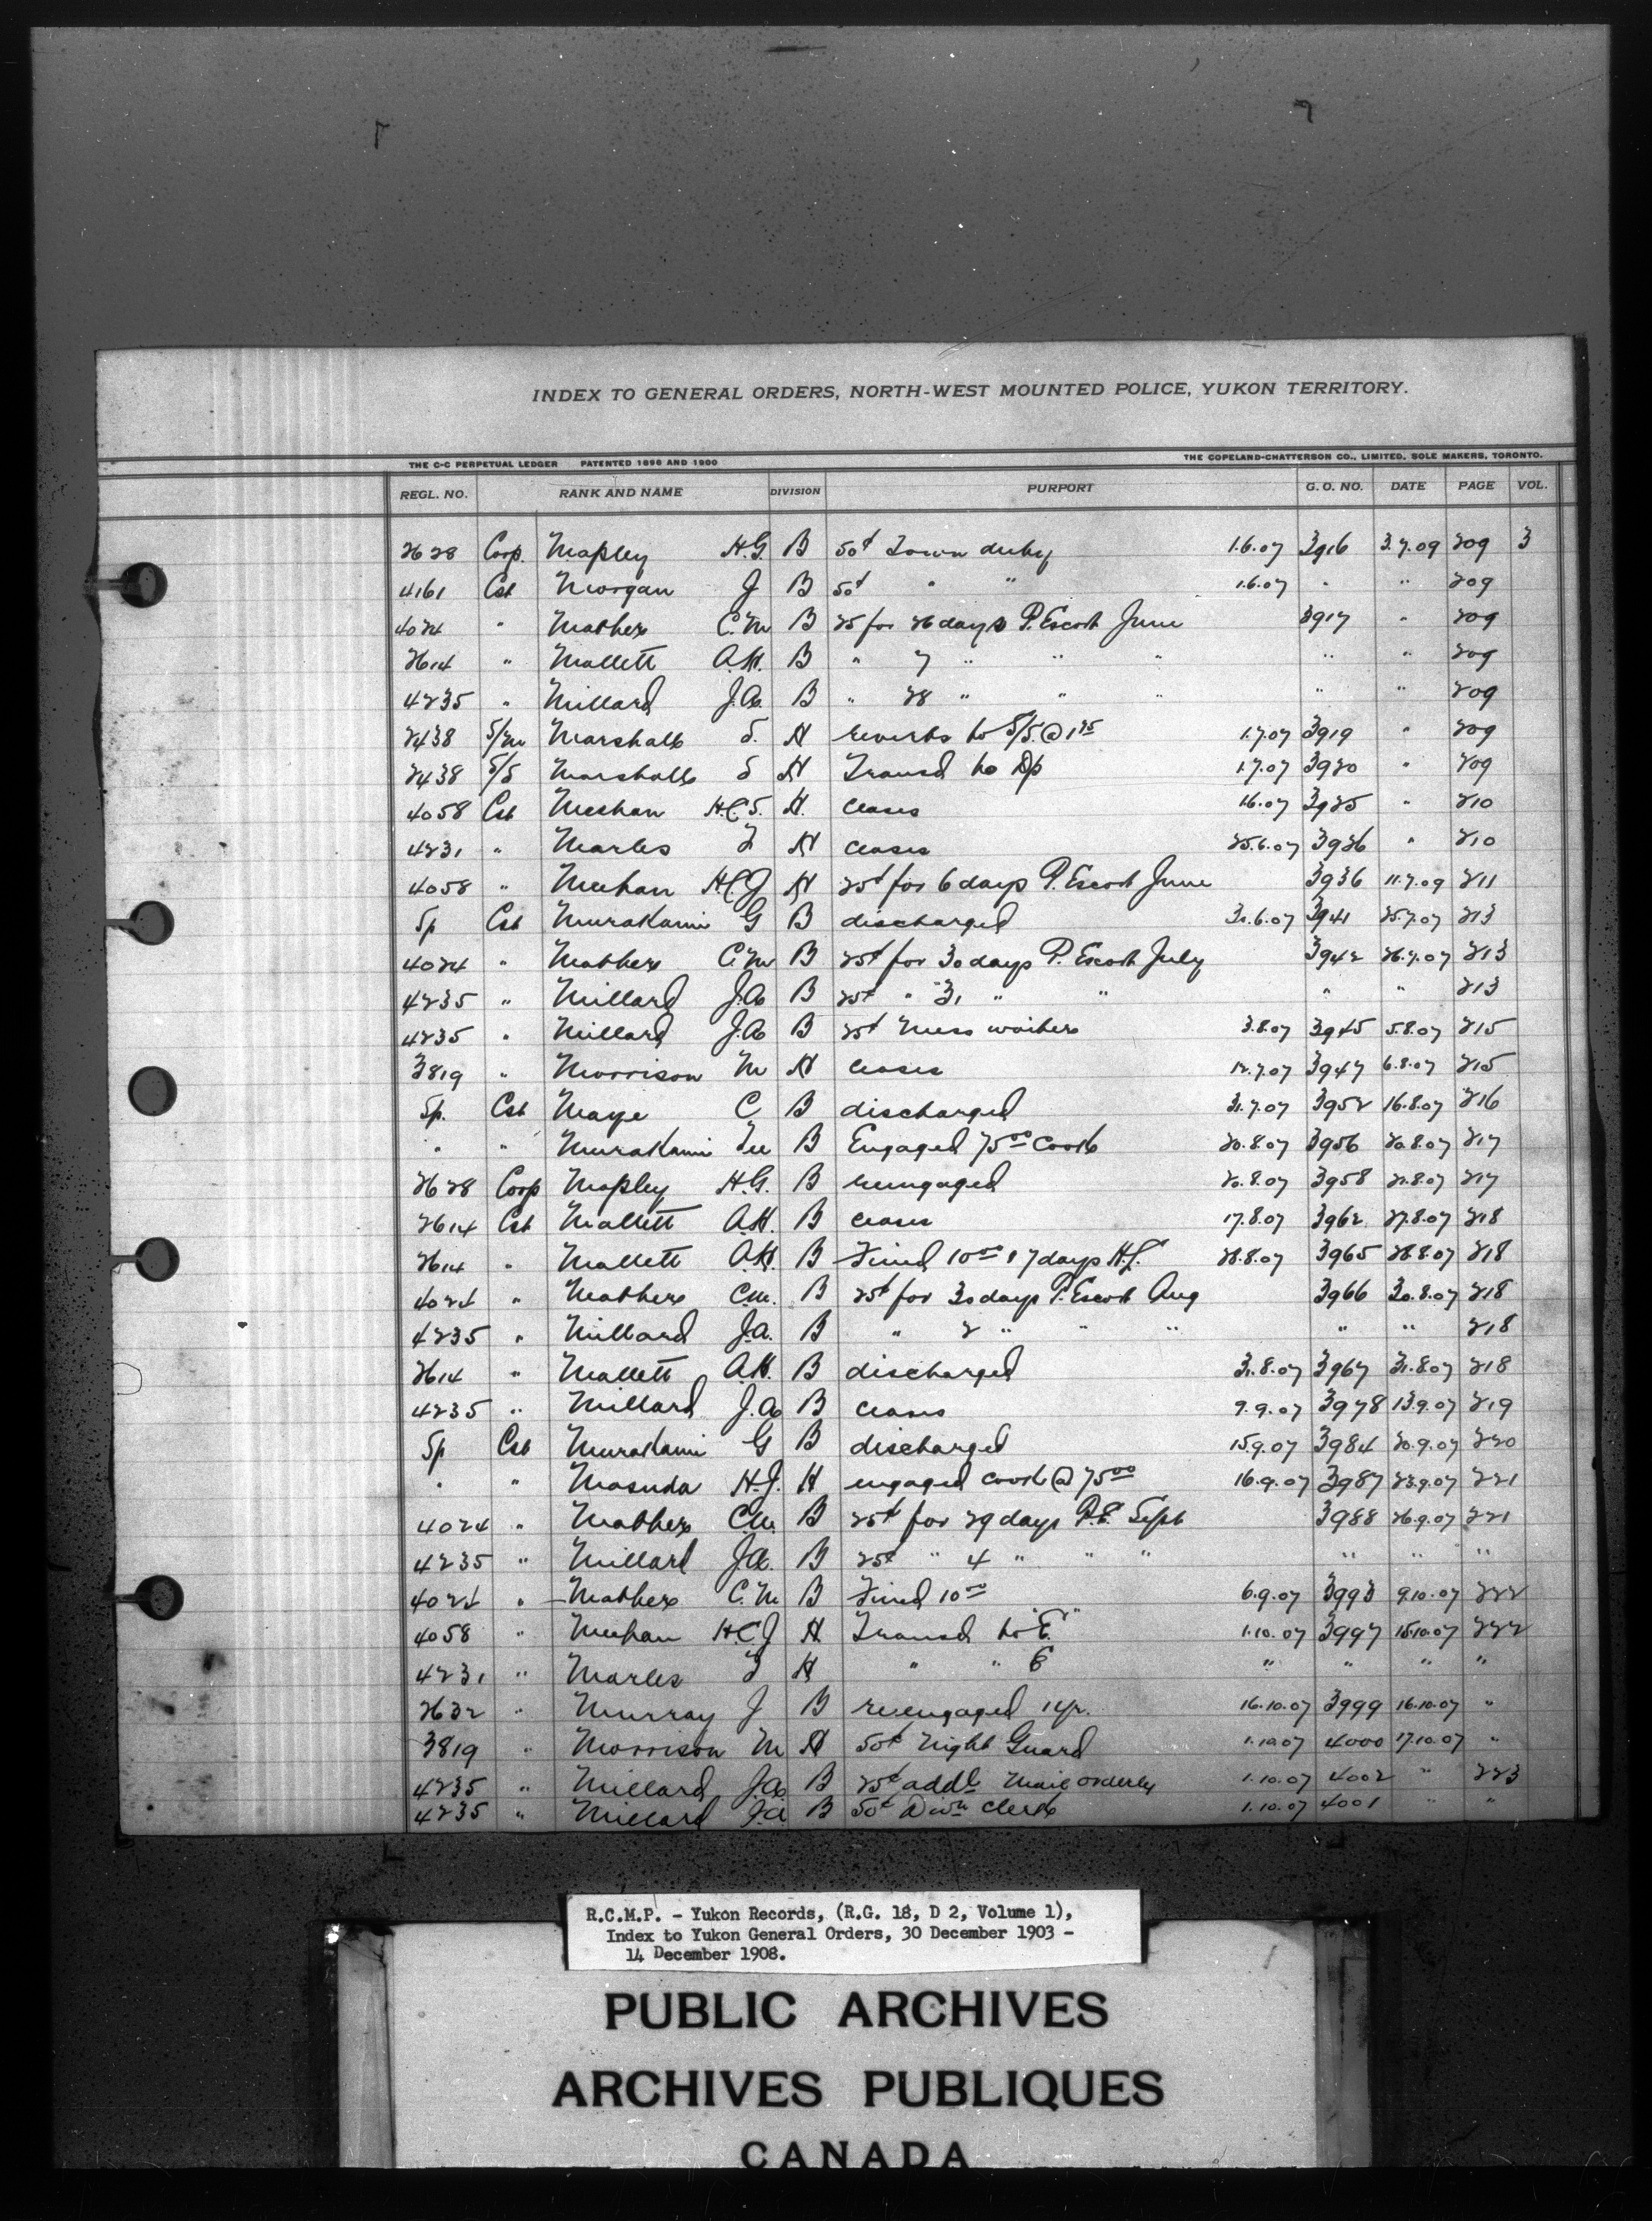 INDEX TO GENERAL ORDERS, NORTH-WEST MOUNTED POLICE, YUKON TERRITORY.
THE C-C PERPETUAL LEDGER PATENTED 1896 AND 1900 THE COPELAND-CHATTERSON CO., LIMITED, SOLE MAKERS, TORONTO.
REGL. NO. RANK AND NAME DIVISION PURPORT G. O. NO. DATE PAGE VOL.
2628 Corp. Mapley H.G B 50¢ Town duty 1.6.07 3916 3.7.09 209 3
4161 Cst Morgan J B 50¢ " " 1.6.07 " " 209
4024 " Mathers C.M B 25 for 26 days P. Escort June 3917 " 209
2614 " Mallett A.H. B " 7 " " " " " 209
4235 " Millard J.A. B " 28 " " " " " 209
2438 S/M Marshall S. H reverts to S/S. @ 1.25 1.7.07 3919 " 209
2438 S/S Marshall S H Transd to Dp 1.7.07 3920 " 209
4058 Cst Meehan H.C.S. H. ceases 1.6.07 3925 " 210
4231 " Marles H ceases 25.6.07 3926 " 210
4058 " Meehan H.C.J H 25¢ for 6 days P. Escort June 3936 11.7.09 211
Sp Cst Murakami G B discharged 30.6.07 3941 25.7.07 213
4024 " Mathers C.M B 25¢ for 30 days P. Escort July 3942 26.7.07 213
4235 " Millard J.A B 25¢ " 31 " " " " 213
4235 " Millard J.A B 25¢ Mess waiter 3.8.07 3945 5.8.07 215
3819 " Morrison M H ceases 12.7.07 3947 6.8.07 215
Sp. Cst Maye C B discharged 31.7.07 3952 16.8.07 216
" " Murakami B Engaged 75.00 Cook 20.8.07 3956 20.8.07 217
2628 Corp Mapley H.G. B reengaged 20.8.07 3958 21.8.07 217
2614 Cst Mallett A.H. B ceases 17.8.07 3962 27.8.07 218
2614 " Mallett A.H. B Fined 10.00 & 7 days H.L. 28.8.07 3965 28.8.07 218
4024 " Mathers C.M. B 25¢ for 30 days P. Escort Aug 3966 30.8.07 218
4235 " Millard J.A. B " 2 " " " " " 218
2614 " Mallett A.H. B discharged 31.8.07 3967 31.8.07 218
4235 " Millard J.A B ceases 9.9.07 3978 13.9.07 219
Sp Cst Murakami G B discharged 15.9.07 3984 20.9.07 220
" " Masuda H.J. H engaged cook @ 75.00 16.9.07 3987 23.9.07 221
4024 " Mathers C.M. B 25¢ for 29 days P.E. Sept 3988 26.9.07 221
4235 " Millard J.A. B 25¢ " 4 " " " " " "
4024 " Mathers C.M B Fined 10.00 6.9.07 3993 9.10.07 222
4058 " Meehan H.C.J H Transd to "E" 1.10.07 3997 15.10.07 222
4231 " Marles H " " E " " " "
2632 " Murray J B reengaged 1 yr. 16.10.07 3999 16.10.07 "
3819 " Morrison M H 50¢ Night Guard 1.10.07 4000 17.10.07 "
4235 " Millard J.A B 25¢ addl Mail orderly 1.10.07 4002 " 223
4235 " Millard J.A B 50¢ Divn Clerk 1.10.07 4001 " "
R.C.M.P. - Yukon Records, (R.G. 18, D 2, Volume 1),
Index to Yukon General Orders, 30 December 1903 -
14 December 1908.
PUBLIC ARCHIVES
ARCHIVES PUBLIQUES
CANADA